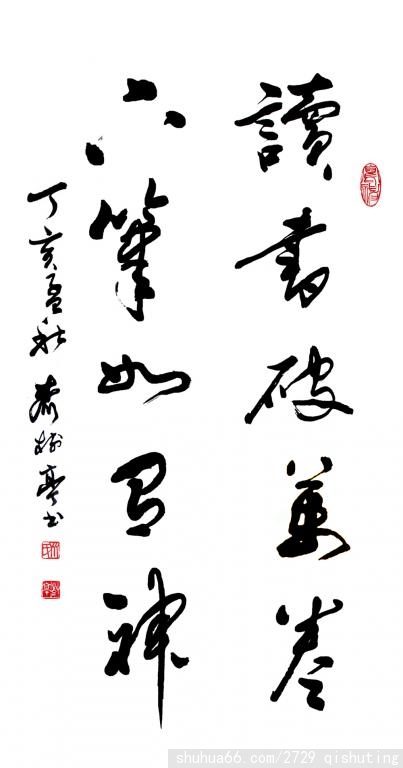 讀書破萬卷
下筆如有神
丁亥孟秋 齐树亭书
shuhua66.com/2729 qishuting